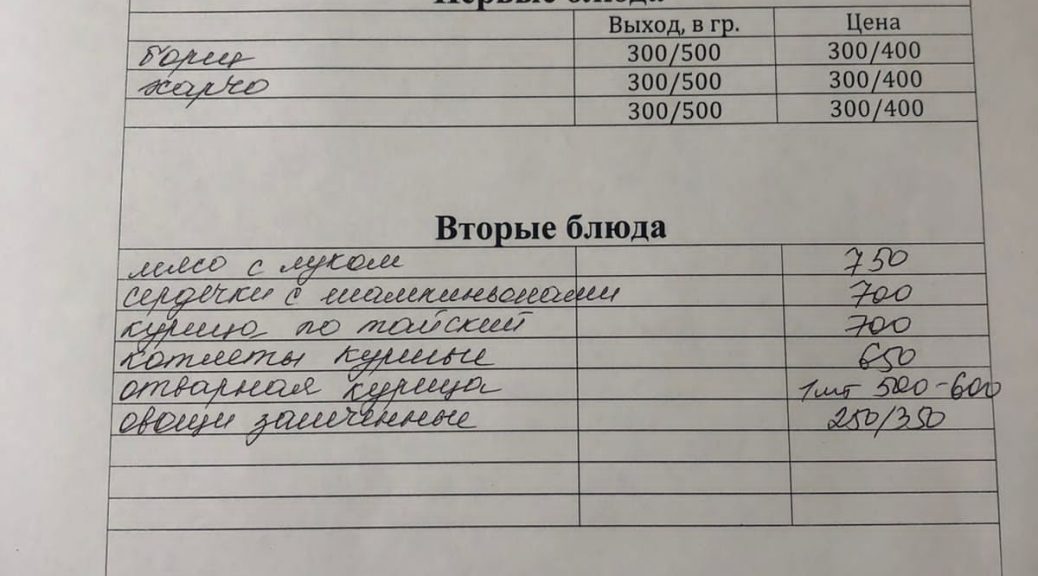 Первые блюда
Выход, в гр. Цена
борщ 300/500 300/400
харчо 300/500 300/400
300/500 300/400
Вторые блюда
мясо с луком 750
сердечки с шампиньонами 700
курица по тайский 700
котлеты куриные 650
отварная курица 1шт 500-600
овощи запеченные 250/350